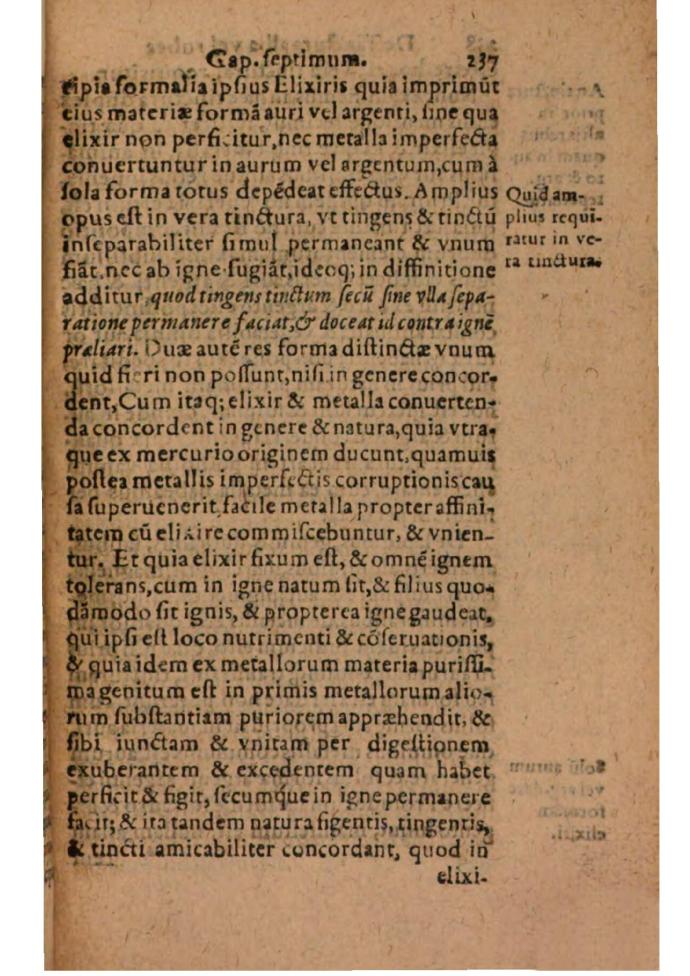 Cap. ſeptimum. 237
cipia formalia ipſius Elixiris quia imprimūt
eius materiæ formā auri vel argenti, ſine qua
elixir non perficitur, nec metalla imperfecta
conuertuntur in aurum vel argentum, cum à
ſola forma totus depēdeat effectus. Amplius
opus eſt in vera tinctura, vt tingens & tinctū
inſeparabiliter ſimul permaneant & vnum
fiāt, nec ab igne fugiāt, ideoq; in diffinitione
additur, quod tingens tinctum ſecū ſine vlla ſepa-
ratione permanere faciat, & doceat id contra ignē
præliari. Duæ autē res forma diſtinctæ vnum
quid fieri non poſſunt, niſi in genere concor-
dent, Cum itaq; elixir & metalla conuerten-
da concordent in genere & natura, quia vtra-
que ex mercurio originem ducunt, quamuis
poſtea metallis imperfectis corruptionis cau
ſa ſuperuenerit, facile metalla propter affini-
tatem cū elixire commiſcebuntur, & vnien-
tur. Et quia elixir fixum eſt, & omnē ignem
tolerans, cum in igne natum ſit, & filius quo-
dāmodo ſit ignis, & propterea igne gaudeat,
qui ipſi eſt loco nutrimenti & cōſeruationis,
& quia idem ex metallorum materia puriſſi-
ma genitum eſt in primis metallorum alio-
rum ſubſtantiam puriorem appræhendit, &
ſibi iunctam & vnitam per digeſtionem
exuberantem & excedentem quam habet
perficit & figit, ſecumque in igne permanere
facit; & ita tandem natura figentis, tingentis,
& tincti amicabiliter concordant, quod in
elixi-
Quid am-
plius requi-
ratur in ve-
ra tinctura.